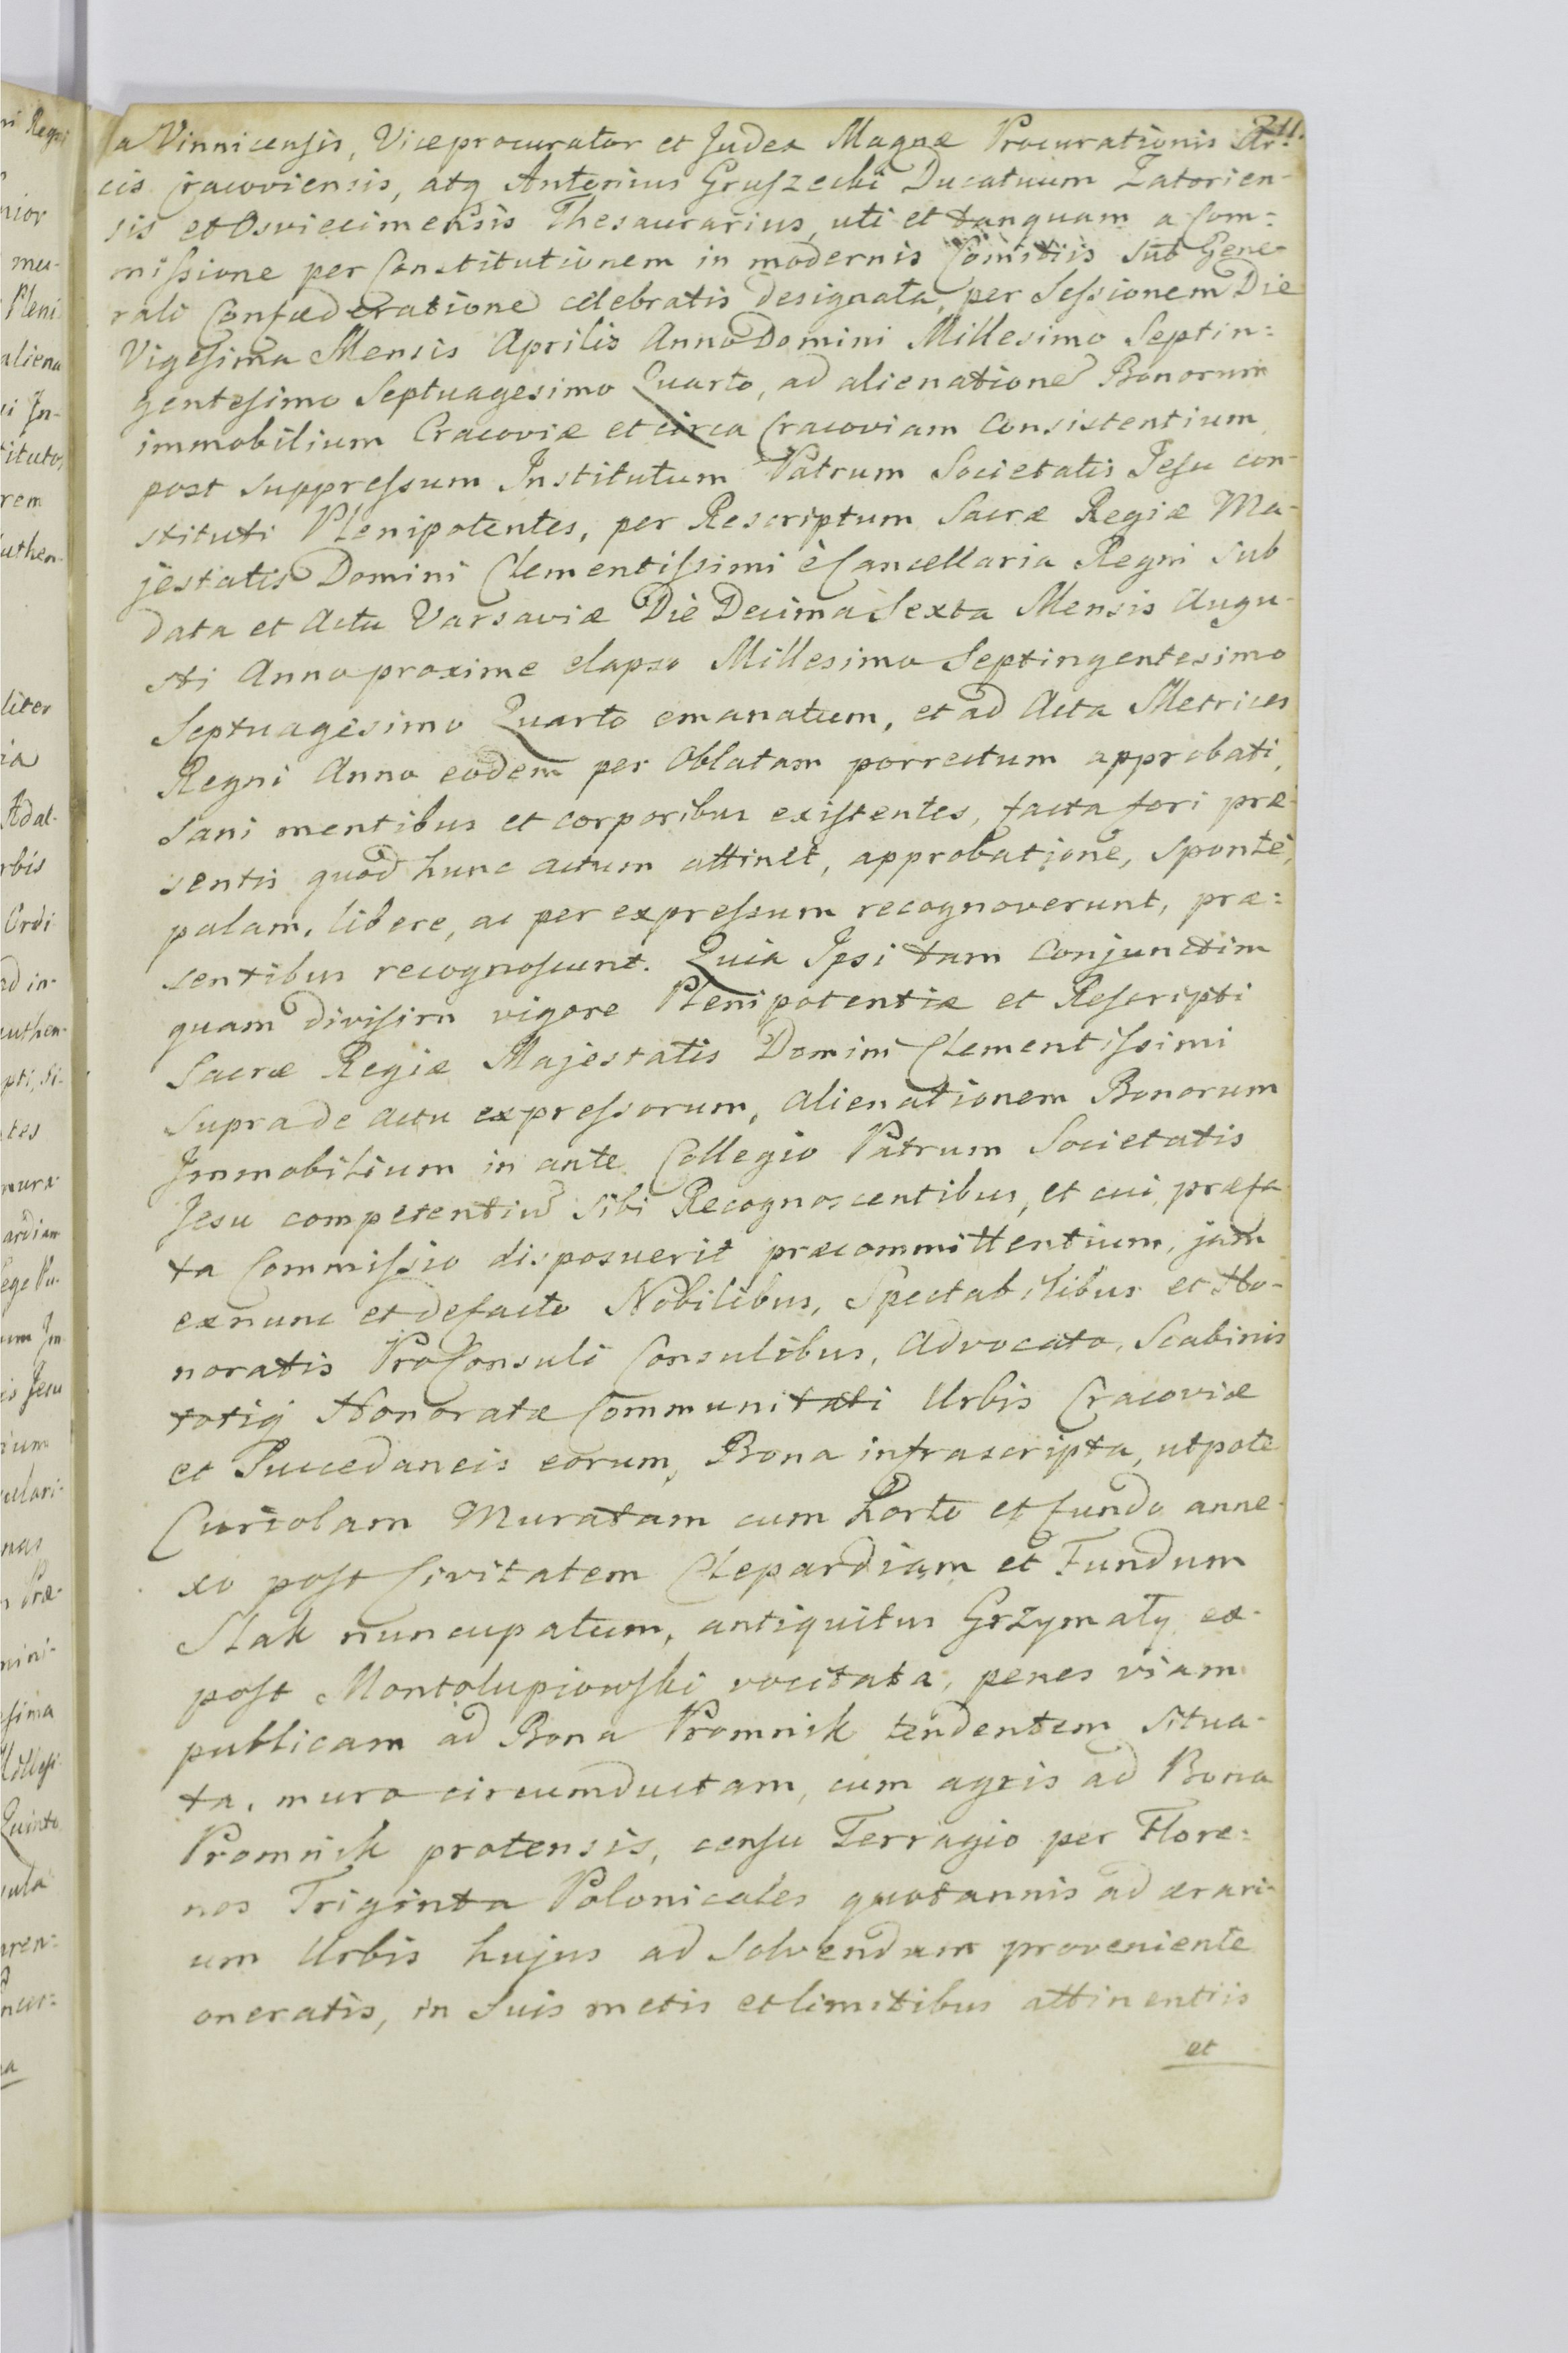 211.
a Vinnicensis, Viceprocurator et Judex Magnæ Procurationis Ar-
cis Cracoviensis, atq Antonius Gruszecki Ducatuum Zatorien-
sis et Osviecimensis Thesaurarius, uti et tanquam a Com=
missione per Constitutionem in modernis Comitiis sub Gene-
rali Confæderatione celebratis designata, per Sessionem Die
Vigesima Mensis Aprilis Anno Domini Millesimo Septin=
gentesimo Septuagesimo Quarto, ad alienatione Bonorum
immobilium Cracoviæ et circa Cracoviam Consistentium
post suppressum Institutum Patrum Societatis Jesu con-
stituti Plenipotentes, per Rescriptum Sacræ Regiæ Ma-
jestatis Domini Clementissimi è Cancellaria Regni sub
data et Actu Varsaviæ Die Decima Sexta Mensis Augu-
sti Anno proxime elapso Millesimo Septingentesimo
Septuagesimo Quarto emanatum, et ad Acta Metrices
Regni Anno eodem per Oblatam porrectum approbati,
sani mentibus et corporibus existentes, facta fori præ-
sentis quod hunc actum attinet, approbatione, sponte,
palam, libere, ac per expressum recognoverunt, præ=
sentibus recognoscunt. Quia Ipsi tam Conjunctim
quam divisim vigore Plenipotentiæ et Rescripti
Sacræ Regiæ Majestatis Domini Clementissimi
supra de actu expressorum, alienationem Bonorum
Immobilium in ante Collegio Patrum Societatis
Jesu competentiu sibi Recognoscentibus, et cui præfa-
ta Commissio disposuerit præcommittentium, jam
exnunc et defacto Nobilibus, Spectabilibus et Ho-
noratis ProConsuli Consulibus, Advocato, Scabinis
totiq Honoratæ Communitati Urbis Cracoviæ
et Succedaneis eorum, Bona infrascripta, utpote
Curiolam Muratam cum horto et fundo anne-
xo post Civitatem Clepardiam et Fundum
Slak nuncupatum, antiquitus Grzymały ex-
post Montolupiowski vocitata, penes viam
publicam ad Bona Promnik tendentem situa-
ta, muro circumductam, cum agris ad Bona
Promnik protensis, censu Terragio per Flore=
nos Triginta Polonicales quotannis ad ærari-
um Urbis hujus ad solvendum proveniente
oneratis, in suis metis et limitibus attinentiis
et